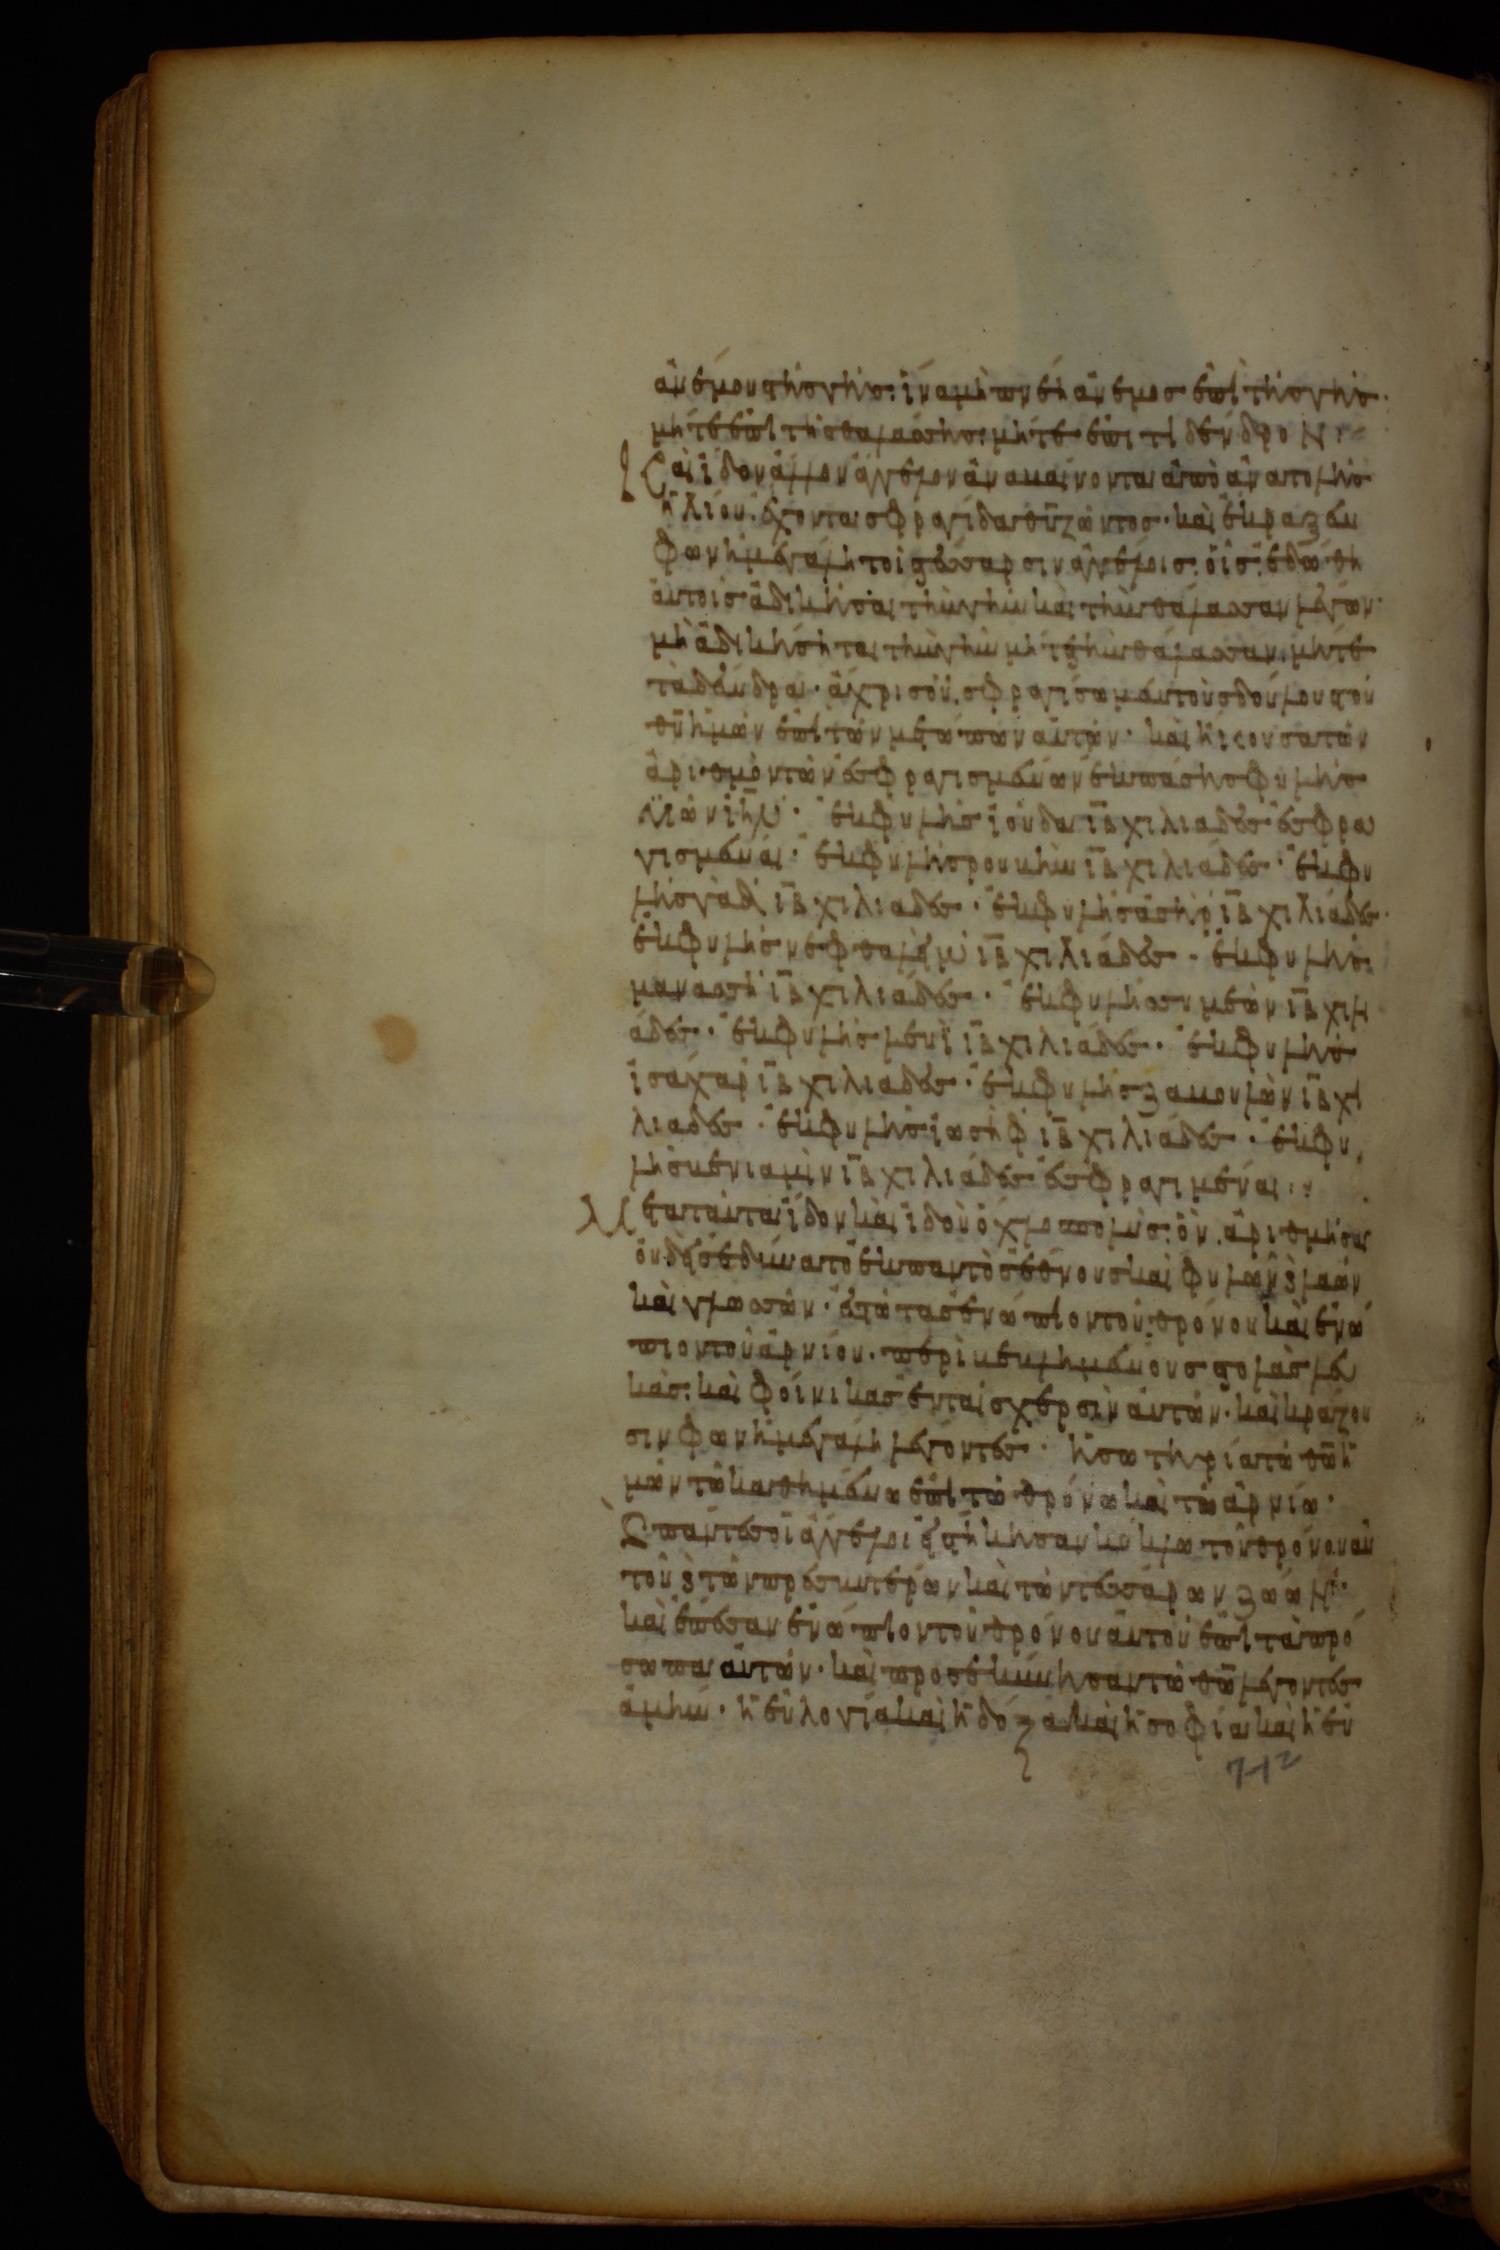 ἀνέμους τῆς γῆς· ἵνα μὴ πνέη ἄνεμος ἐπὶ τῆς γῆς·
μήτε ἐπὶ τῆς θαλάσσης· μήτε ἐπι τὶ δένδρον·
Καὶ ἴδον ἄλλον ἄγγελον ἀναβαίνοντα ἀπὸ ἀνατολῆς
ἡλίου· ἔχοντα σφραγίδα θ̅υ̅ ζῶντος· καὶ ἔκραξεν
φωνῆ μεγάλη τοῖς τέσσαρσιν ἀγγέλοις· οἷς ἐδώθη
αὐτοῖς ἀδικῆσαι τὴν γῆν καὶ τὴν θάλασσαν λέγων·
μὴ ἀδικήσηται τὴν γῆν μήτε τὴν θάλασσαν· μήτε
τὰ δένδρα· ἄχρις οὗ σφραγίσωμεν τοὺς δούλους τοῦ
θ̅υ̅ ἡμῶν ἐπὶ τῶν μετώπων αὐτῶν· καὶ ἤκουσα τὸν
ἀριθμὸν τῶν ἐσφραγισμένων ἐκ πάσης φυλῆς
υἱῶν ι̅η̅λ̅· ἐκ φυλῆς ἰούδα ι̅β̅ χιλιαδες ἐσφρα
γισμέναι· ἐκ φυλῆς ρουβὴν ι̅β̅ χιλιάδες· ἐκ φυ
λῆς γὰδ ι̅β̅ χιλιαδες· ἐκ φυλῆς ἀσὴρ ι̅β̅ χιλιάδες·
ἐκ φυλῆς νεφθαλεὶμ ι̅β̅ χιλιάδες· ἐκ φυλῆς
μανασσῆ ι̅β̅ χιλιάδες· ἐκ φυλῆς συμεὼν ι̅β̅ χιλι
άδες· ἐκ φυλῆς λευὶ ι̅β̅ χιλιάδες· ἐκ φυλῆς
ἰσάχαρ ι̅β̅ χιλιάδες· ἐκ φυλῆς ζαβουλὼν ι̅β̅ χι
λιαδες· ἐκ φυλῆς ἰωσὴφ ι̅β̅ χιλιάδες· ἐκ φυ
λῆς βενιαμὶν ι̅β̅ χιλιάδες ἐσφραγιμέναι·
Μετα ταῦτα ἴδον καὶ ἰδοὺ ὄχλο πολὺς· ὃν ἀριθμῆσαι
οὐδεὶς ἐδύνατο ἐκ παντὸς ἔθνους καὶ φυλῶν καὶ λαῶν
καὶ γλωσσῶν· ἑστῶτας ἐνώπιον τοῦ θρόνου καὶ ἐνώ
πιον τοῦ ἀρνίου· περὶβεβλημένους στολὰς λευ
κάς· καὶ φοίνικας ἐν ταῖς χερσὶν αὐτῶν· καὶ κράζου
σιν φωνῆ μεγάλη λέγοντες· ἡ σωτηρία τῶ θ̅ω̅ ἡ
μῶν τῶ καθημένω ἐπὶ τῶ θρόνω καὶ τῶ ἀρνίω·
Καὶ πάντες οἱ ἄγγελοι ἑστήκησαν κύκλω τοῦ θρόνου αὐ
τοῦ καὶ τῶν πρεσβυτέρων καὶ τῶν τεσσάρων ζώων·
καὶ ἔπεσαν ἐνώπιον τοῦ θρόνου αὐτοῦ ἐπὶ τὰ πρό
σωπα αὐτῶν· καὶ προσεκύνησαν τῶ θ̅ω̅ λέγοντες
ἀμήν· ἡ εὐλογία καὶ ἡ δόξα καὶ ἡ σοφία καὶ ἡ εὐ